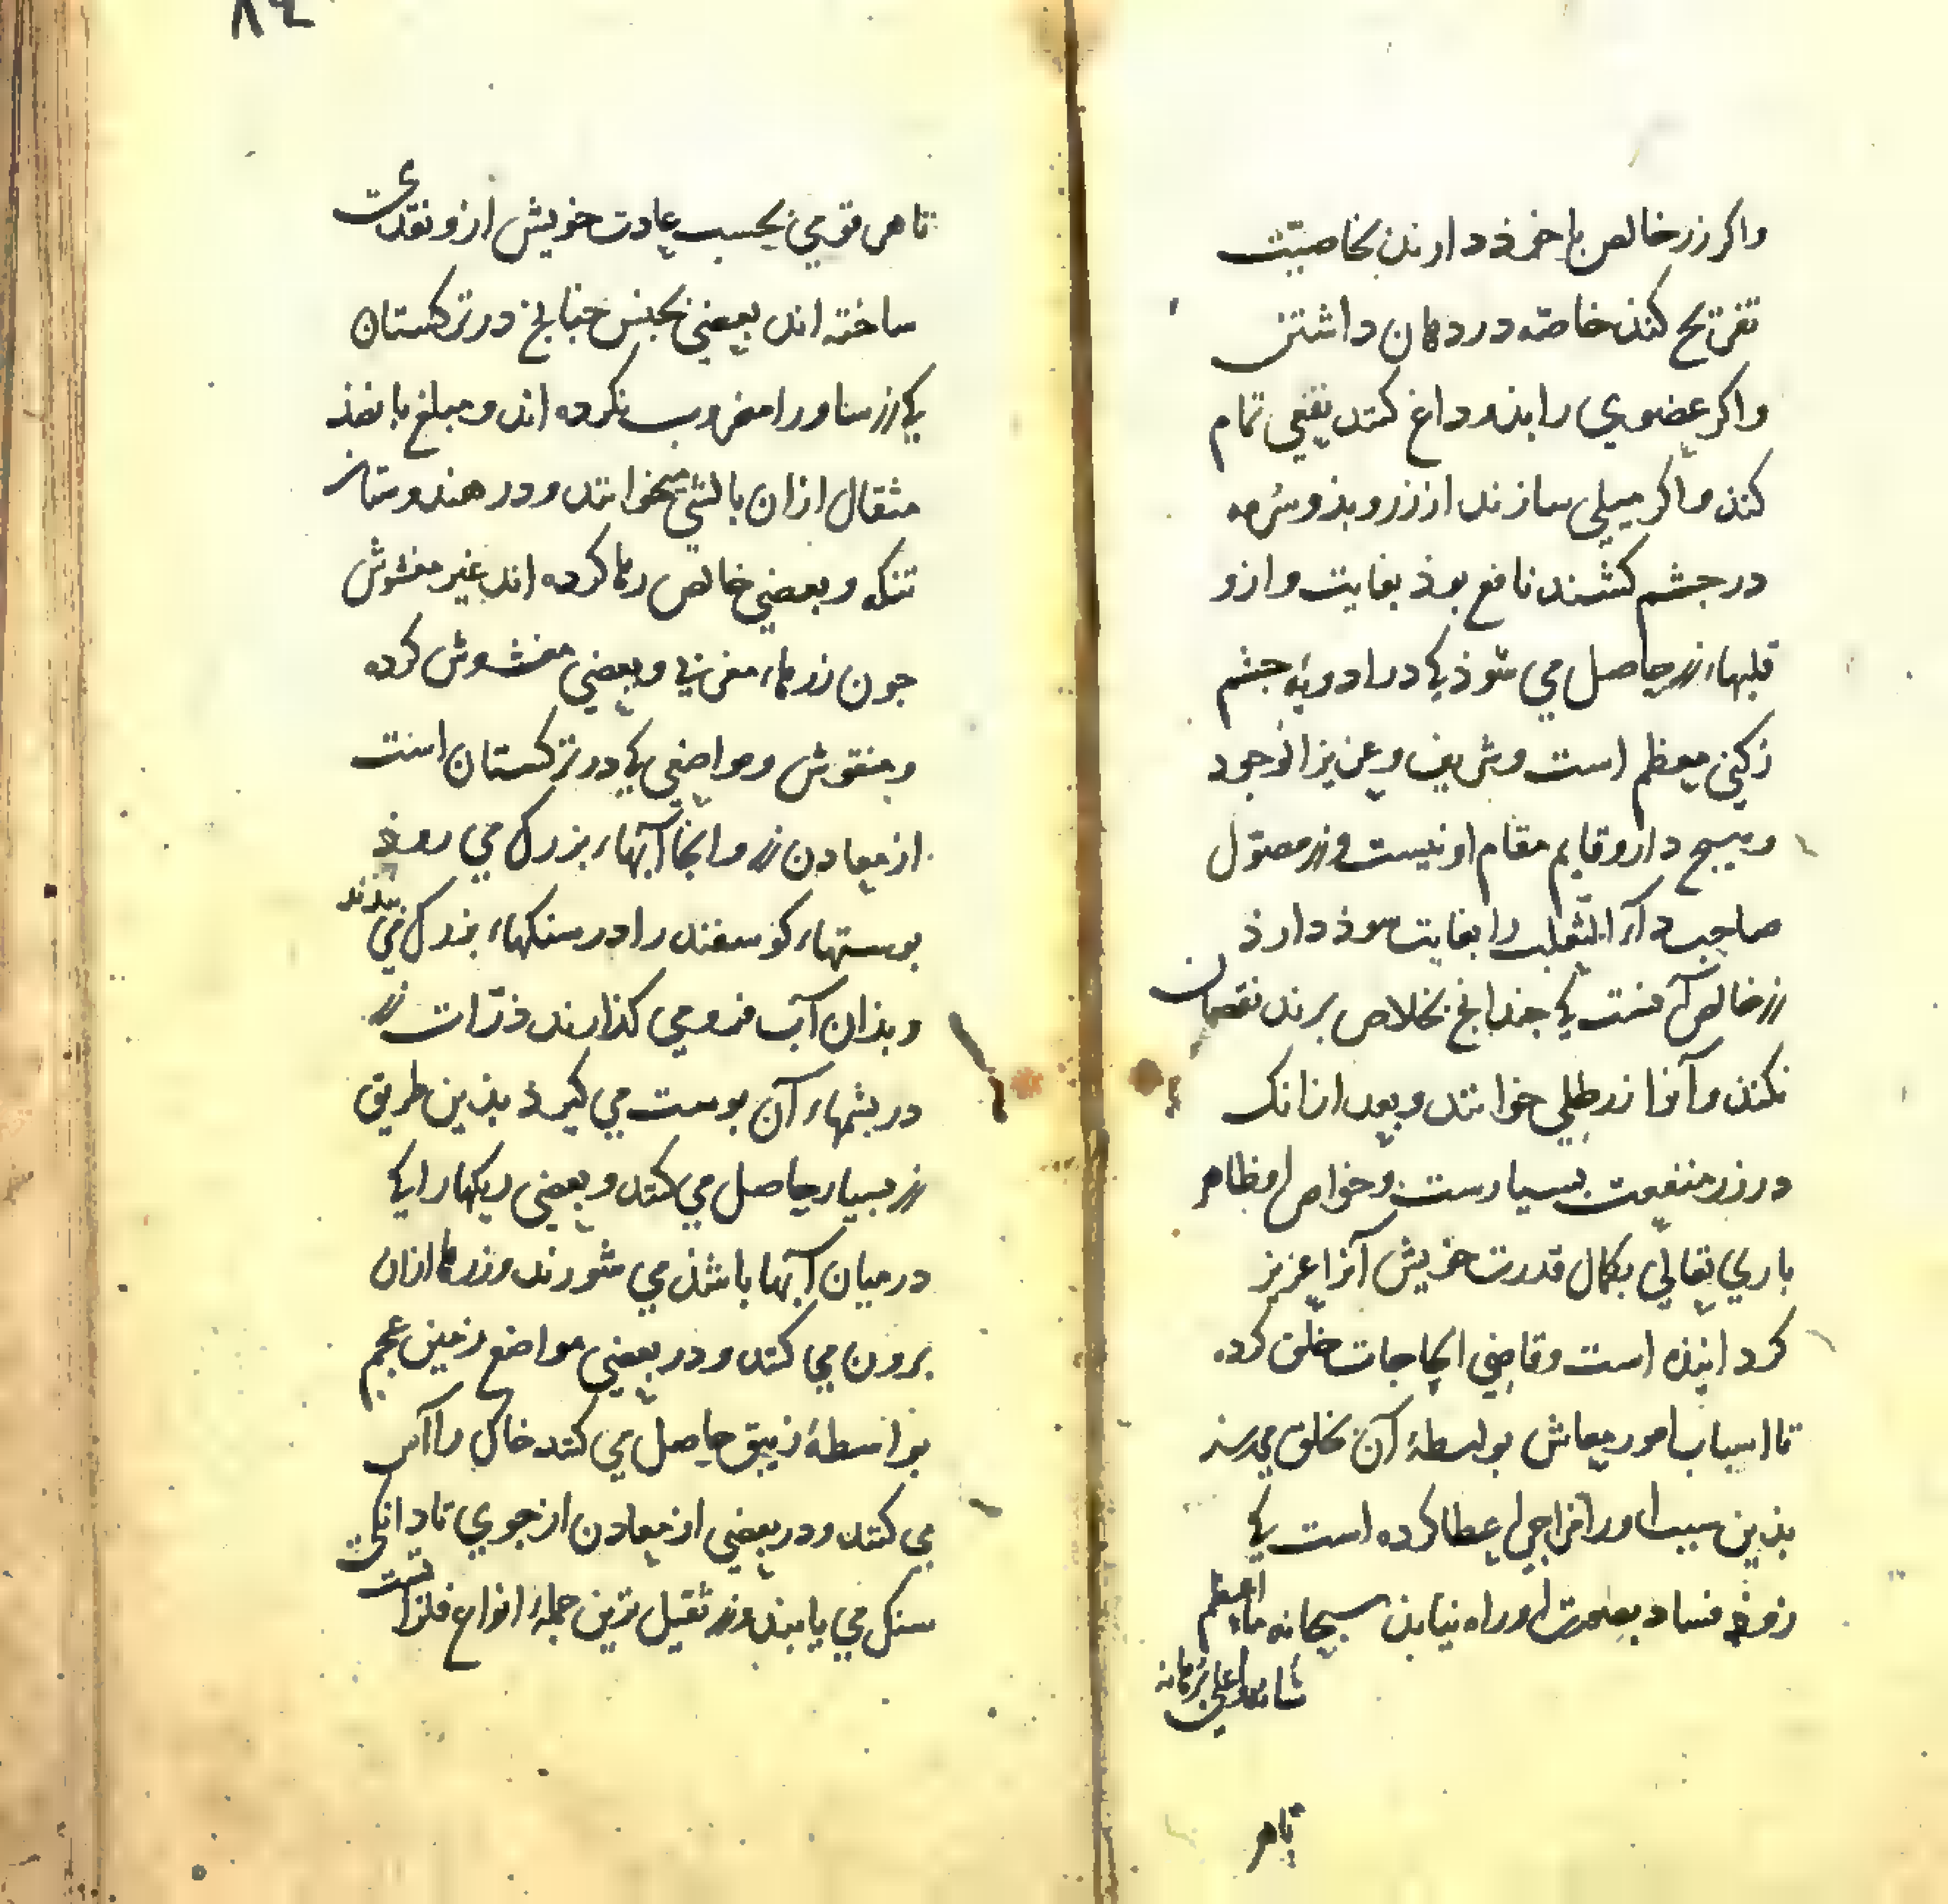 واكر زر خالص با خوذ دارند بخاصیّت
تفریح كند خاصّه در دهان داشتن
واكر عضوي را بذو داغ كنند نفعی تمام
كند واكر میلی سازند از زر و بذو سُرمه
در جشم كشند نافع بوذ بغایت وازو
قلبهاء زر حاصل می شوذ كی در ادویۀ جشم
ركنی معظم است و شریف و عزیز الوجود
و هیچ دارو قایم مقام او نیست و زر محلول
صاحب داء الثعلب را بغایت سوذ دارذ
زر خالص آنست كی جندانج بخلاص برند نقصان
نكند وآنرا زر طلی خوانند و بعد ازانك
در زر منفعت بسیارست و خواص او ظاهر
باري تعالی بكمال قدرت خویش آنرا عزیز
كردانیذه است و قاضی الحاجات خلق كرده
تا اسباب امور معاش بواسطۀ آن بخلق میرسذ
بذین سبب اورا مزاجی اعطا كرده است كی
زوذ فساد بصورت او راه نیابذ سبحانه ما اعظم
شانه و اعلی برهانه
تا هر
٨٤
تا هر قومی بحسب عادت خویش ازو نقدی
ساخته اند بعضی بجنس جنانج در تركستان
كی زر ساو را مضروب نكرده اند و مبلغ بانصذ
مثقال ازان بالشی میخوانند و در هندوستان
تنكه و بعضی خالص رها كرده اند غیر مغشوش
جون زرهاء مغربی و بعضی مغشوش كرده
و منقوش و مواضعی كی در تركستان است
از معادن زر و انجا آبهاء بزرك می روذ
بوستهاء كوسفند را در سنكهاء بزرك می بندند
و بذان آب فرو می كذارند ذرّات زر
در بشمهاء آن بوست می كیرذ بذین طریق
زر بسیار حاصل می كنند و بعضی ریكها را كی
در میان آبها باشذ می شورند و زرها ازان
برون می كنند و در بعضی مواضع زمین عجم
بواسطۀ زیبق حاصل می كنند خاك را آس
می كنند و در بعضی از معادن از جوي تا دانكی
سنك می یابند و زر ثقیل ترین جملۀ انواع فلزاتست